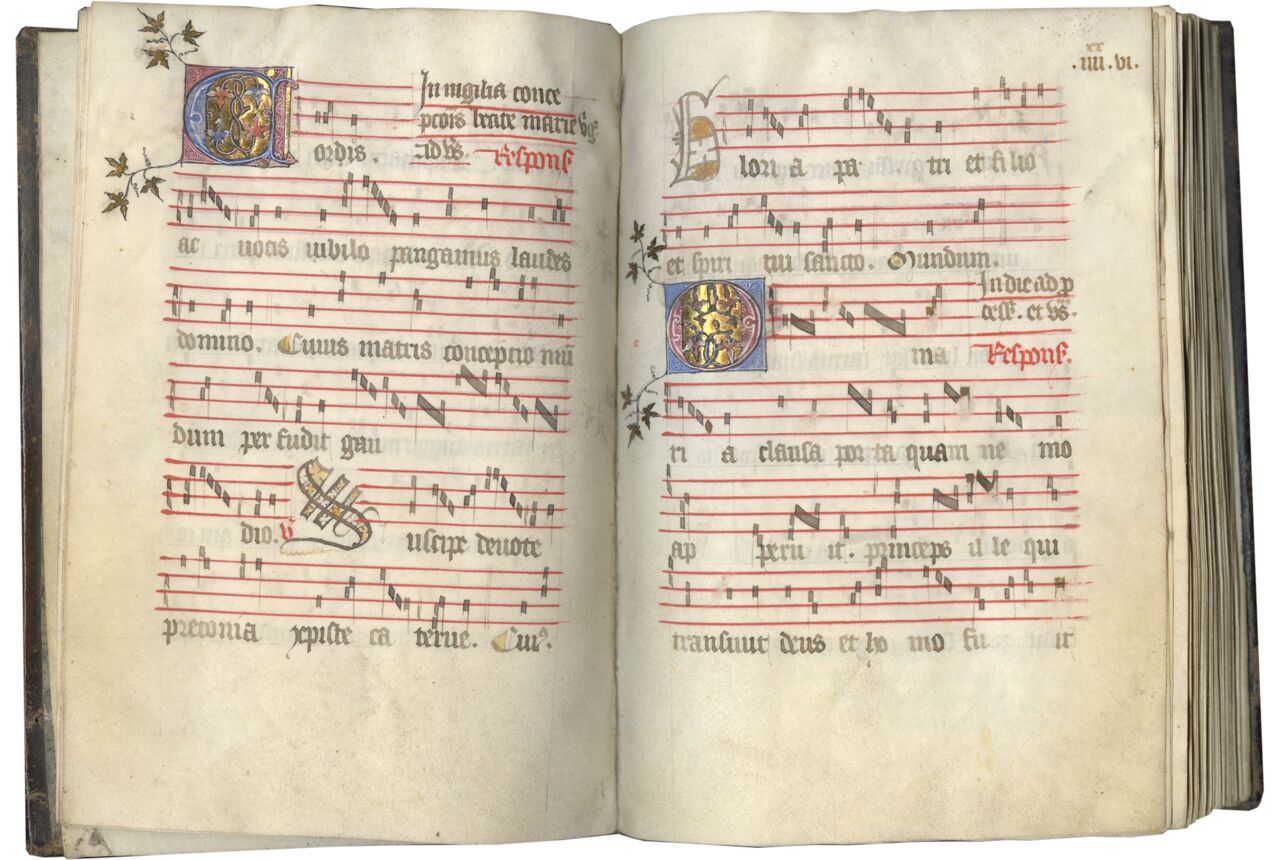 In uigilia conce
pcois beate marie v̄g̃.
C ordis. ad v̄s̄. Respons̄
ac uocis iubilo pangamus laudes
domino. Cuius matris conceptio mū
dum perfudit gau
dio. v̄ Suscipe deuote
preconia xpiste caterue. Cuiꝰ.
xx
.iiii.vi.
Gloria patri et filio
et spiritui sancto. Mundum.
In die ad p̄
cess̄. et v̄s̄.
O ma Respons̄.
ri a clausa porta quam nemo
aperuit. princeps ille qui
transiuit deus et homo fuit